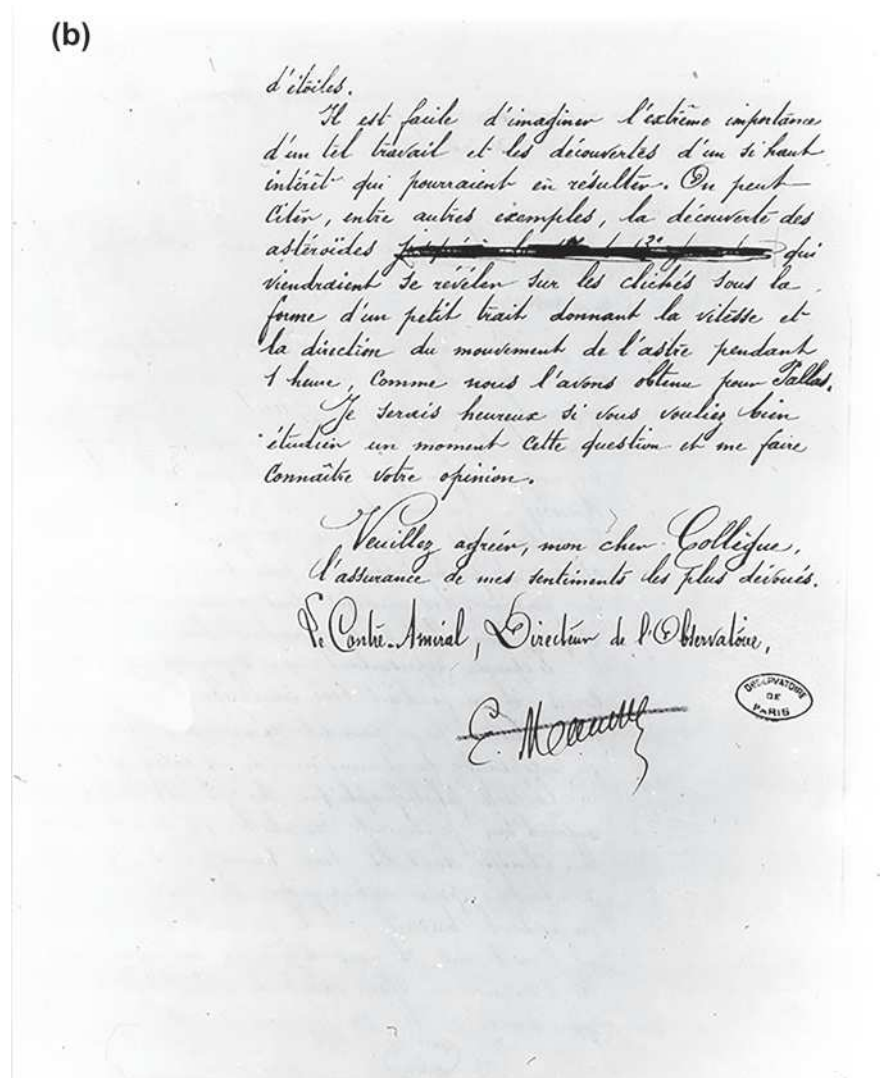 (b)
d'étoiles.
Il est facile d'imaginer l'extrême importance
d'un tel travail et les découvertes d'un si haut
intérêt qui pourraient en résulter. On peut
citer, entre autres exemples, la découverte des
astéroïdes qui
viendraient se révéler sur les clichés sous la
forme d'un petit trait donnant la vitesse et
la direction du mouvement de l'astre pendant
1 heure, comme nous l'avons obtenu pour Pallas.
Je serais heureux si vous vouliez bien
étudier un moment cette question et me faire
connaître votre opinion.
Veuillez agréer, mon cher Collègue,
l'assurance de mes sentiments les plus dévoués.
Le Contre-Amiral, Directeur de l'Observatoire,
OBSERVATOIRE
DE
PARIS
E. Mouchez